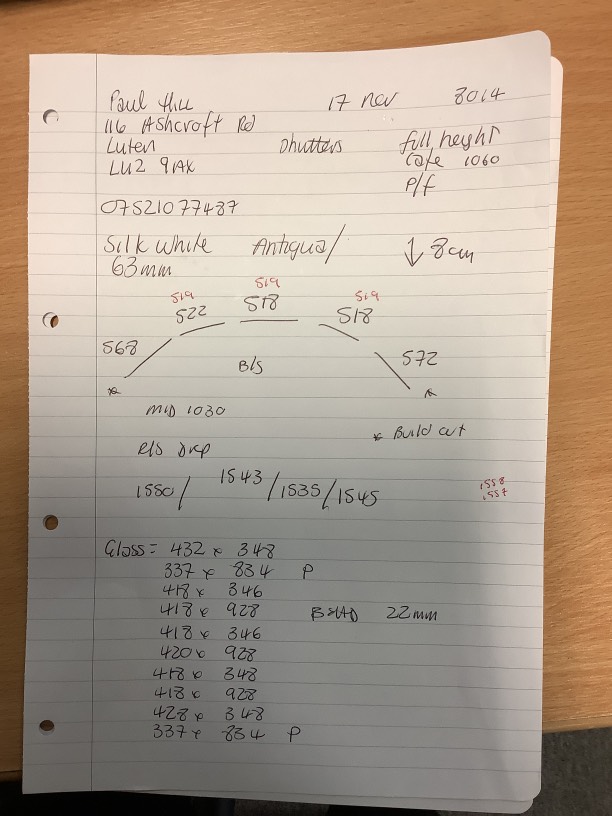 Paul Hill 17 Nov 8014
116 Ashcroft Rd
Luton Shutters full height
LU2 9AX Cafe 1060
P/f
07521077487
Silk white Antigua/ ↓ 8cm
63mm
519 519 519
522 518 518
568 572
B/S
* *
MID 1030
* Build out
R/S Drop
1550/ 1543/1535/1545
1558
1557
Glass = 432 x 348
337 x 834 P
418 x 346
418 x 928 BEAD 22mm
418 x 346
420 x 928
418 x 348
418 x 928
428 x 348
337 x 834 P